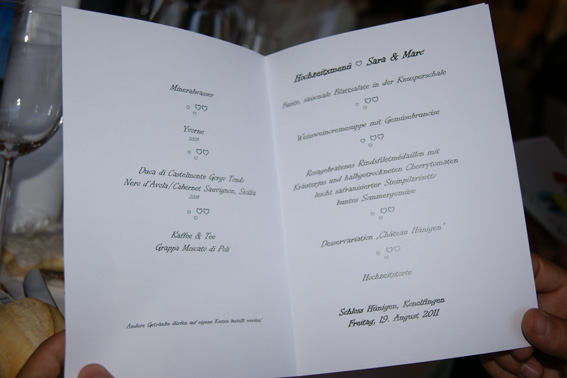 Mineralwasser
Yvorne
2009
Duca di Castelmonte Gorgo Tondo
Nero d'Avola/Cabernet Sauvignon, Sicilia
2008
Kaffee & Tee
Grappa Moscato di Poli
Andere Getränke dürfen auf eigene Kosten bestellt werden!
Hochzeitsmenü ♡ Sara & Marc
Bunte, saisonale Blattsalate in der Knusperschale
Weissweincremesuppe mit Gemüsebrunoise
Rosagebratenes Rindsfiletmédaillon mit
Kräuterjus und halbgetrockneten Cherrytomaten
leicht safranisierter Steinpilzrisotto
buntes Sommergemüse
Dessertvariation „Château Hünigen"
Hochzeitstorte
Schloss Hünigen, Konolfingen
Freitag, 19. August 2011